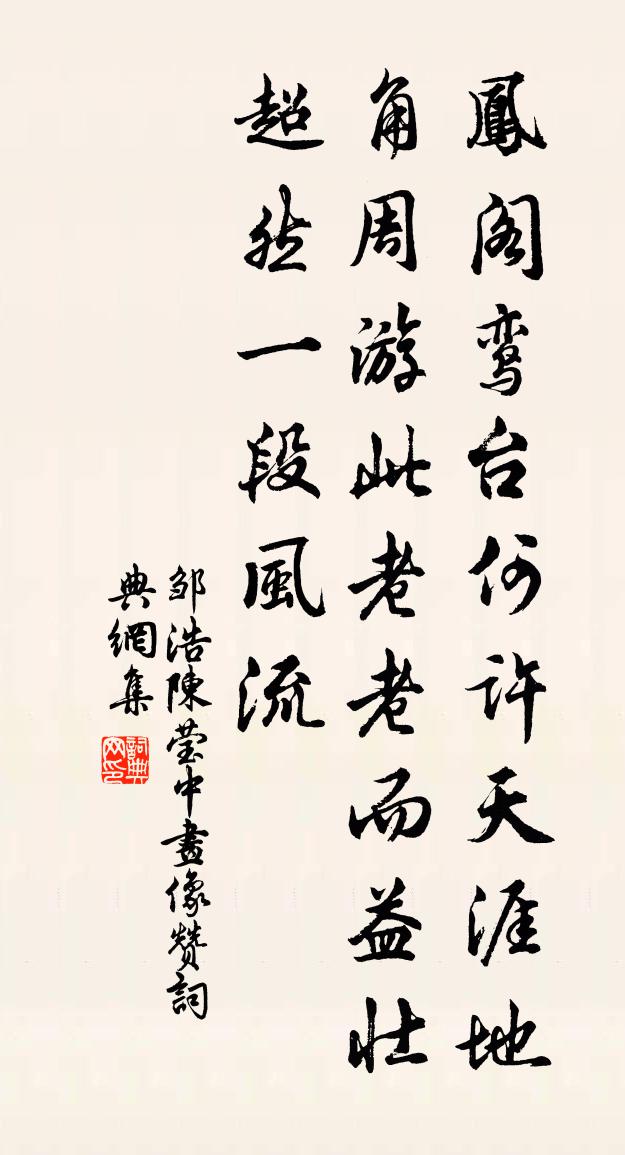 鳳阁鸾台何许天涯地
角周游此老老而益壮
超然一段風流
邹浩陳莹中畫像赞詞
典網集
詞典
网印